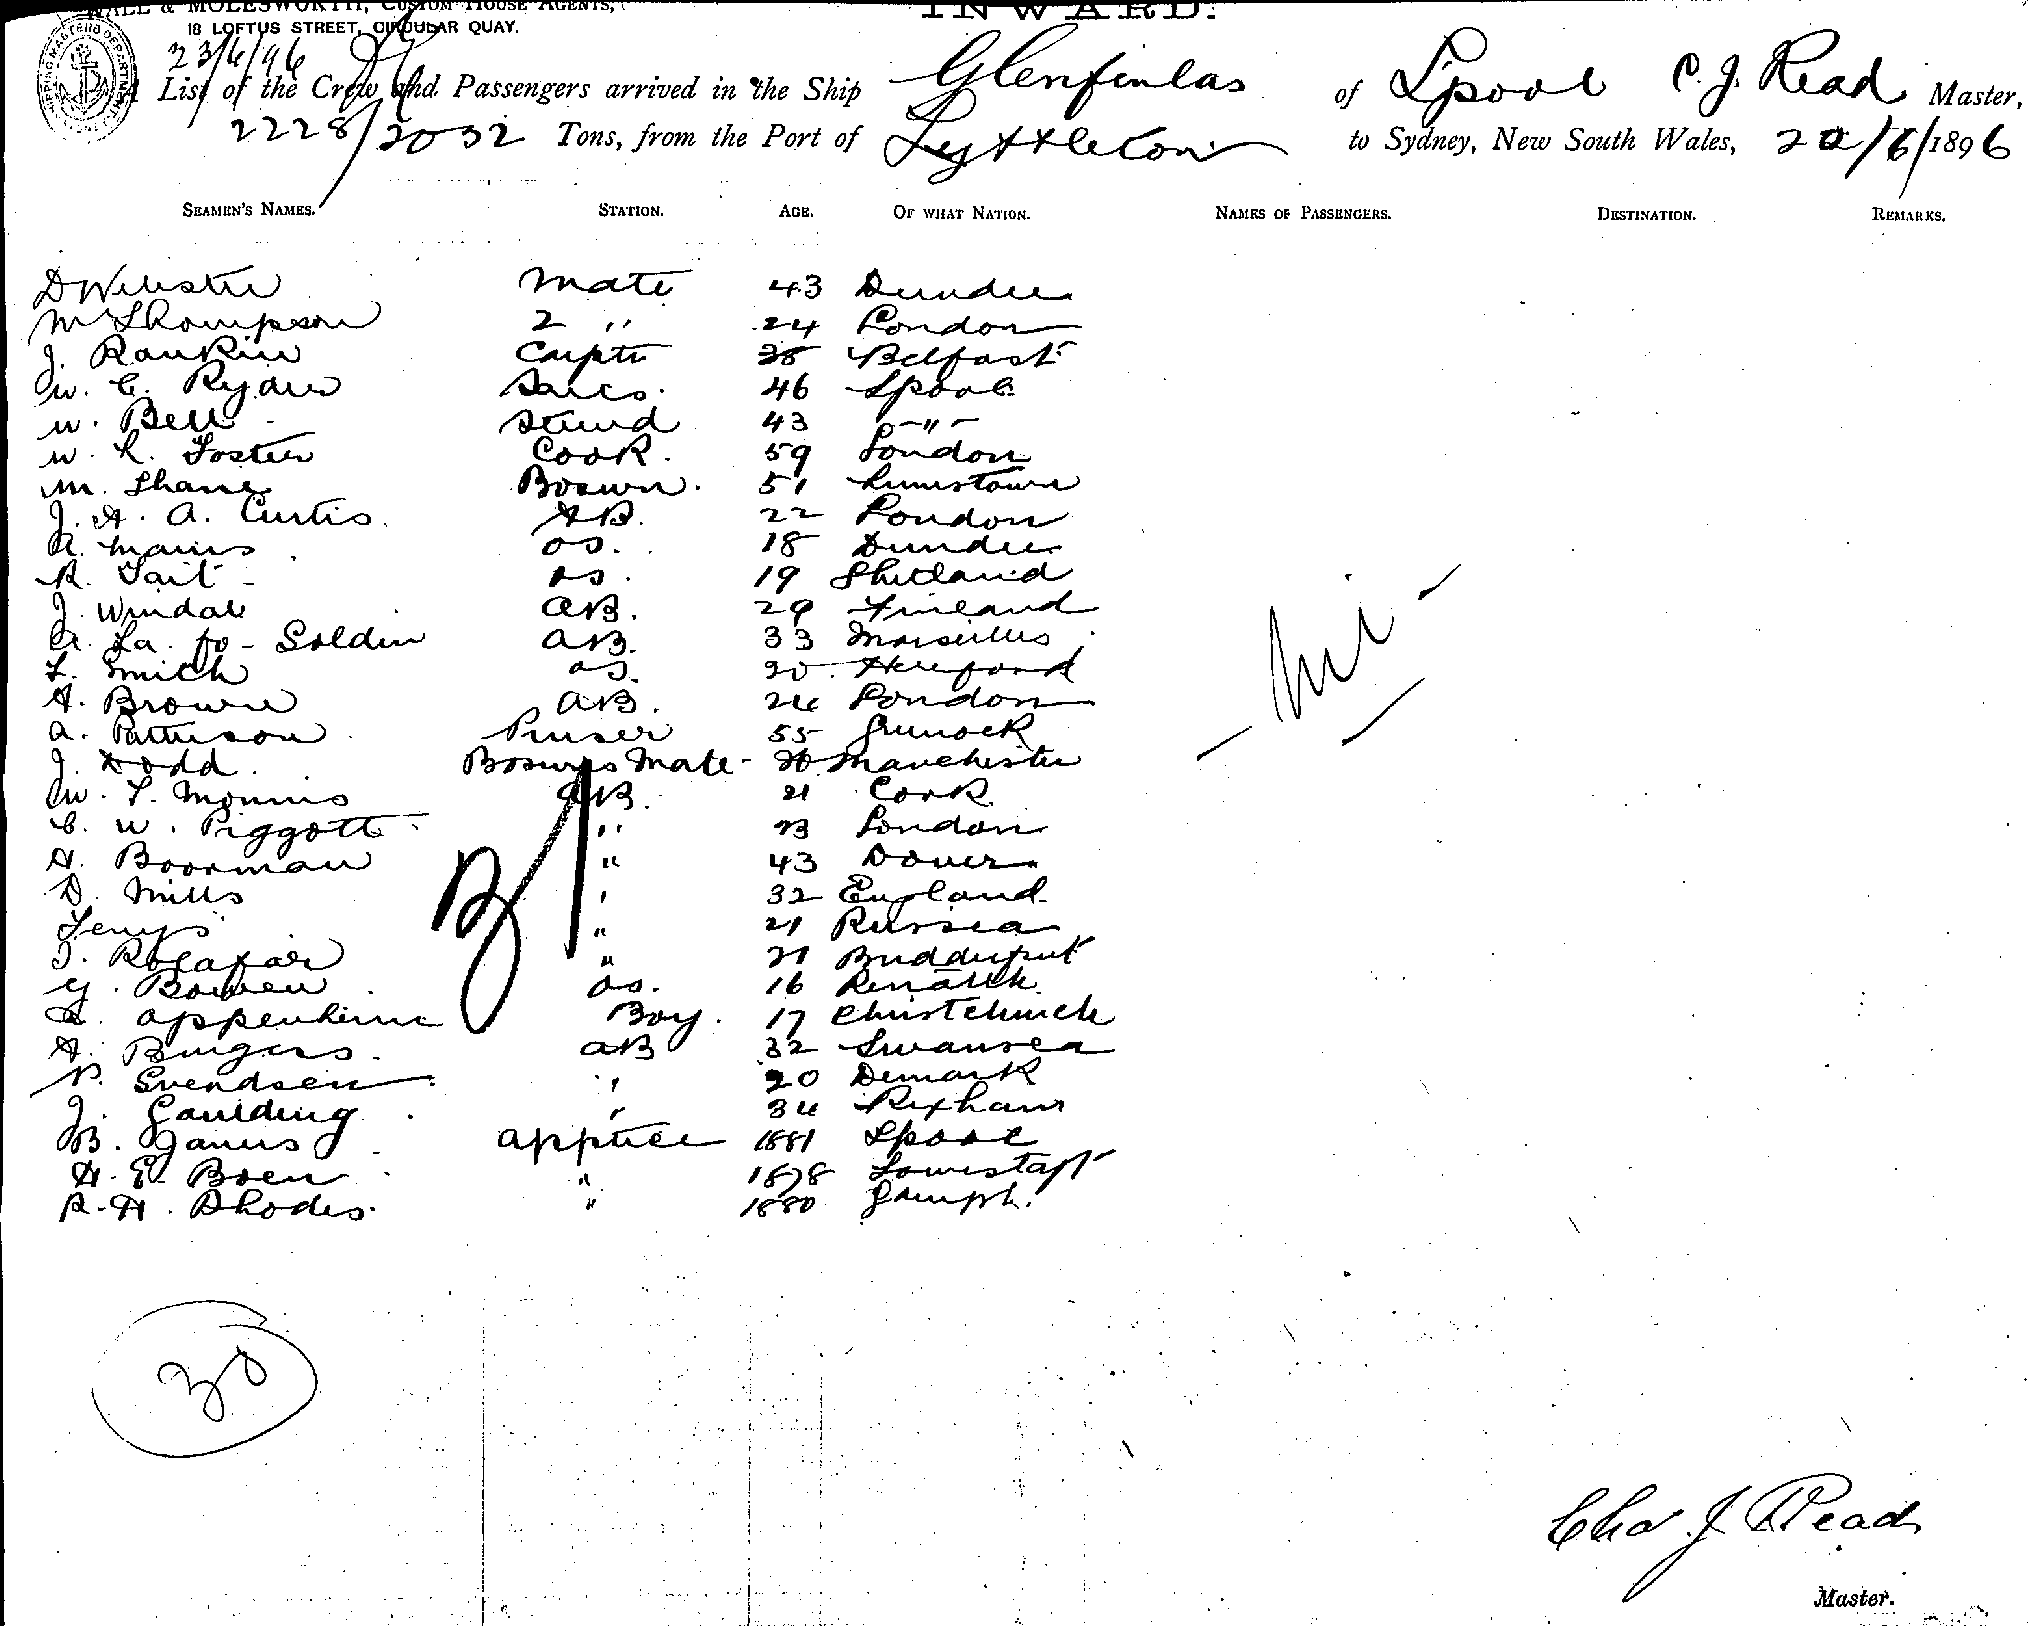 & MOLESWORTH, CUSTOM HOUSE AGENTS,
INWARD.
18 LOFTUS STREET, CIRCULAR QUAY.
23/6/96
A List of the Crew and Passengers arrived in the Ship Glenfinlas of Lpool C. J. Read Master,
2228/2032 Tons, from the Port of Lyttleton to Sydney, New South Wales, 22/6/1896
SEAMEN'S NAMES. STATION. AGE. OF WHAT NATION. NAMES OF PASSENGERS. DESTINATION. REMARKS.
D Webster Mate 43 Dundee
M Thompson 2 " 24 London
J. Rankin Carptr 38 Belfast
W. C. Ryder 46 Lpool
W. Bell Steward 43 -"-
W. R. Foster Cook. 59 London
M. Shane Boswn. 51
J. H. A. Curtis. AB. 22 London
OS. 18 Dundee
R. Tait OS. 19 Shetland
J. Windall AB. 29 Finland
Soldin AB. 33 Marseilles
L. Smith OS. 20 Hereford
H. Brown AB. 24 London
A. Patterson 55 Greenock
J. Dodd Boswns Mate - Manchester
W. T. Morris AB. 21 Cork
C. W. Piggott " 23 London
H. Boorman " 43 Dover
D. Mills " 32 England
" 21 Russia
" 21
G. Bowen OS. 16
Appenheim Boy. 17 Christchurch
H. Burgess AB 32 Swansea
P. Svendsen " 20 Demark
J. Gaulding " 34
B. James apptice 1881 Lpool
H. E. Boen " 1878 Lowestaft
R. H. Rhodes. " 1880
- Nil -
30
Chas J. Read
Master.